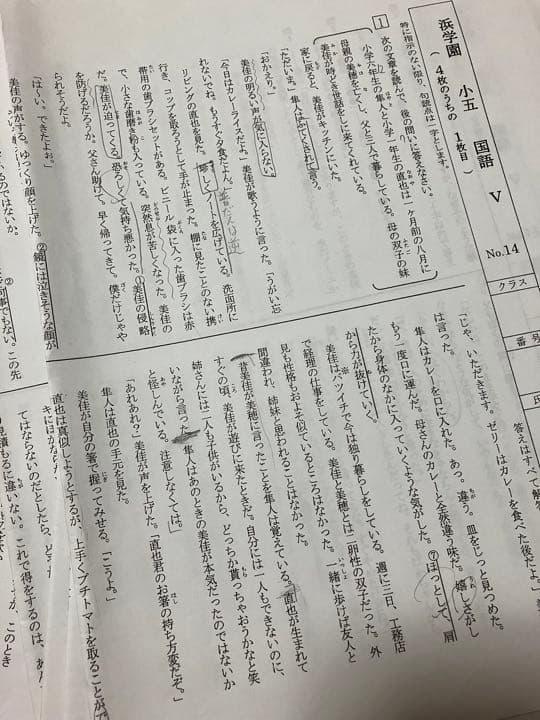 浜学園 小五 国語 Ⅴ No.14
(4枚のうちの 1枚目)
クラス
番号
氏
特に指示のない限り、句読点は一字とします。
答えはすべて解答
1 次の文章を読んで、後の問いに答えなさい。
小学六年生の隼人と小学一年生の直也は一ヶ月前の八月に
母親の美穂を亡くし、父と三人で暮らしている。母の双子の妹
美佳が時どき世話をしに来てくれている。
家に戻ると、美佳がキッチンにいた。
「ただいま」隼人はふてくされて言う。
「おかえり」
美佳の明るい声が気に入らない。
「今日はカレーライスだよ」美佳が歌うように言った。「うがい忘
れないでね。もうすぐ夕食だよん」
リビングの直也を見た。珍しくノートを広げている。洗面所に
行き、コップを取ろうとして手が止まった。棚に見たことのない携
帯用の歯ブラシセットがある。ビニール袋に入った歯ブラシは赤
で、小さな歯磨き粉も入っている。突然息が苦しくなった。美佳の
だ。美佳が迫ってくる。恐ろしくて気持ち悪かった。①美佳の侵略
を防げるだろうか。父さん助けて。早く帰ってきて。僕だけじゃや
られそうだよ。
「はぁい。できたよぉ」
美佳の声がする。ゆっくり顔を上げた。②鏡には泣きそうな顔が
「じゃ、いただきます。ゼリーはカレーを食べた後だよ」
は言った。
隼人はカレーを口に入れた。あっ。違う。皿をじっと見つめた。
もう一度口に運んだ。母さんのカレーと全然違う味だ。嬉しさがし
たから身体のなかに入っていくような気がした。⑦ほっとして、肩
から力が抜けていく。
美佳はバツイチで今は独り暮らしをしている。週に三日、工務店
で経理の仕事をしている。美佳と美穂とは二卵性の双子だった。外
見も性格もおよそ似ているところはなかった。一緒に歩けば友人と
間違われ、姉妹と思われることはなかった。
昔美佳が美穂に言ったことを隼人は覚えている。直也が生まれて
すぐの頃、美佳が遊びに来たときだ。自分には一人もできないのに、
姉さんには二人も子供がいるから、どっちか貰っちゃおうかなと笑
いながら言った。隼人はあのときの美佳が本気だったのではないか
と怪しんでいる。注意しなくては。
「あれあれ?」美佳が声を上げた。「直也君のお箸の持ち方変だぞ」
隼人は直也の手元を見た。
美佳が自分の箸で握ってみせる。「こうよ」
直也は真似しようとするが、上手くプチトマトを取ることがで
てはならないのだとしたら、どこ
に違いない。これで得をするのは、あん